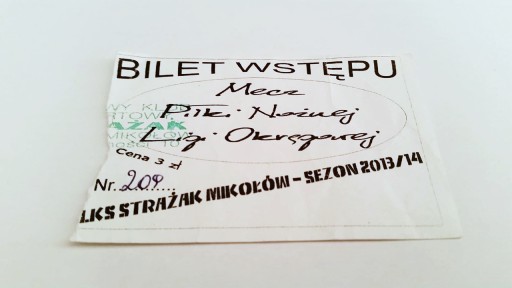 BILET WSTĘPU
Mecz
Piłki Nożnej
Ligi Okręgowej
WY KL
RTOW
AŻAK
MIKOŁÓW
Cena 3 zł
Nr. 209
LKS STRAŻAK MIKOŁÓW - SEZON 2013/14